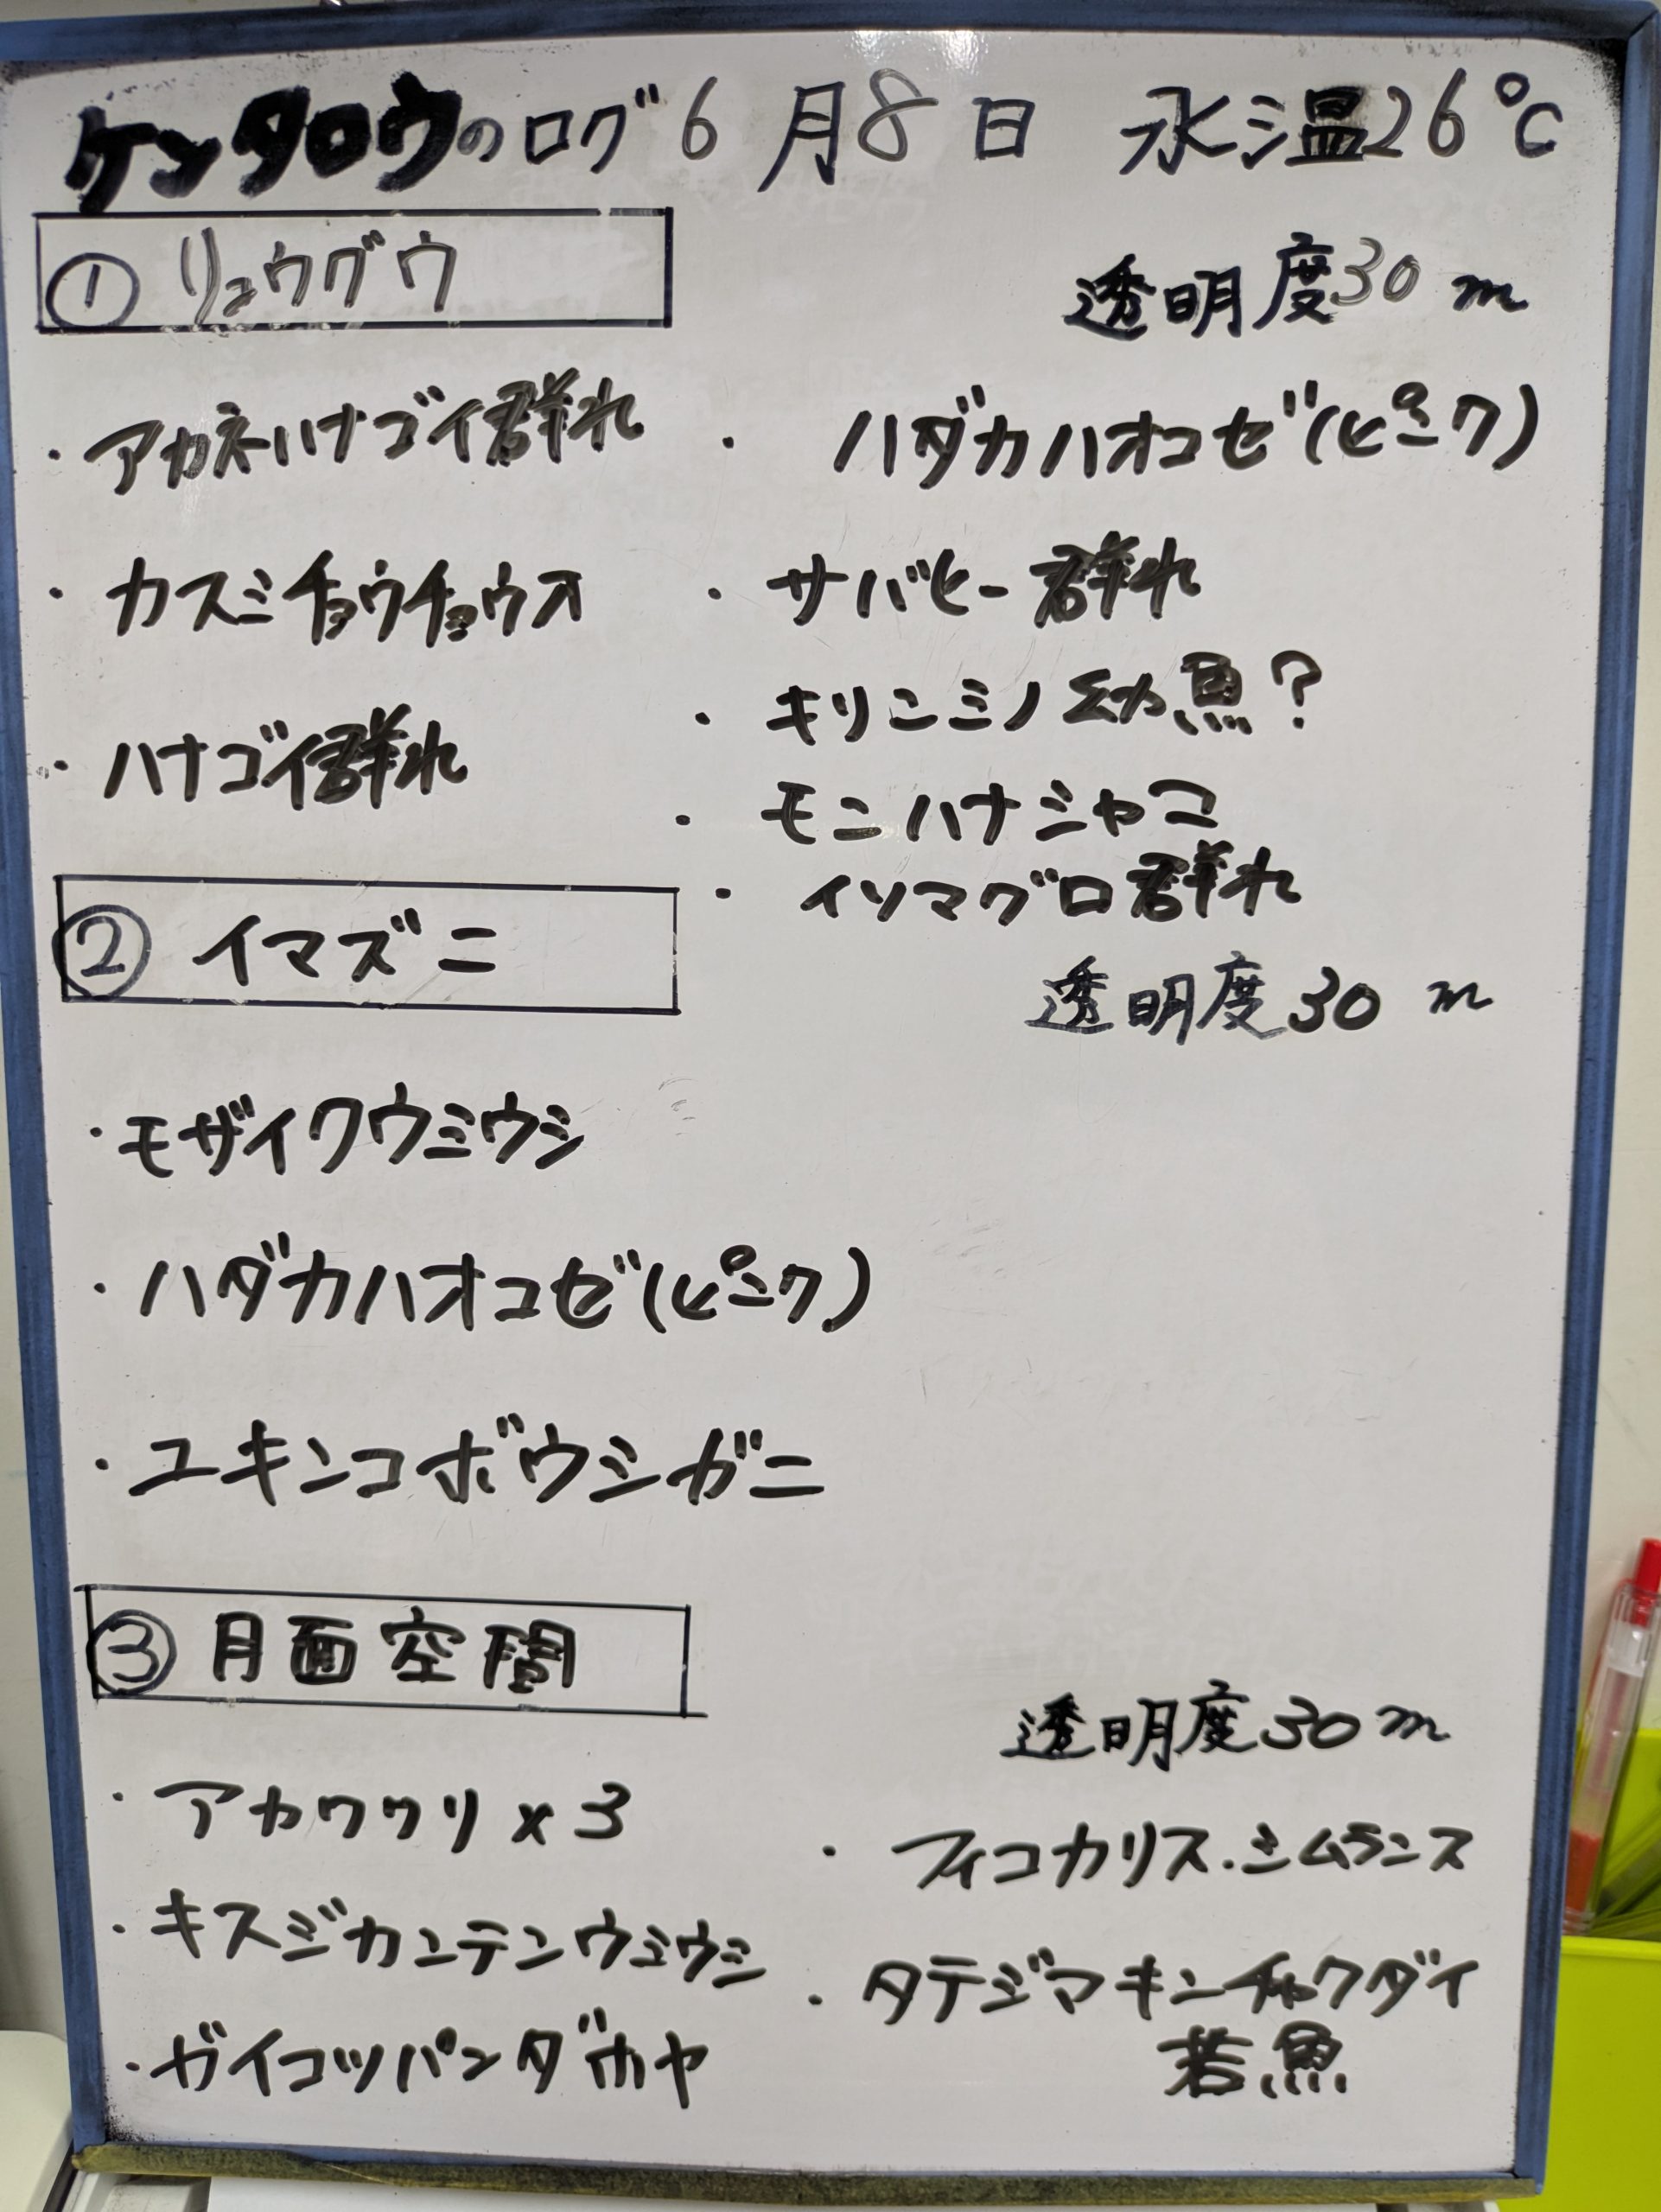 ケンタロウのログ 6月8日 水温26℃
① リュウグウ
透明度30m
・アカネハナゴイ群れ
・カスミチョウチョウウオ
・ハナゴイ群れ
・ハダカハオコゼ(ピンク)
・サバヒー群れ
・キリンミノ幼魚?
・モンハナシャコ
・イソマグロ群れ
② イマズニ
透明度30m
・モザイクウミウシ
・ハダカハオコゼ(ピンク)
・ユキンコボウシガニ
③ 月面空間
透明度30m
・アカククリ×3
・キスジカンテンウミウシ
・ガイコツパンダホヤ
・フィコカリス.シムランス
・タテジマキンチャクダイ
若魚